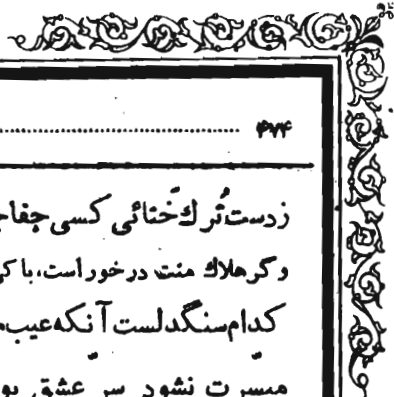 ۴۷۴
زدست تُرك خّتائی کسی جفا
وگر هلاك منت درخور است، با
کدام سنگدلست آنکه عیب
میسّرت نشود سرّ عشق